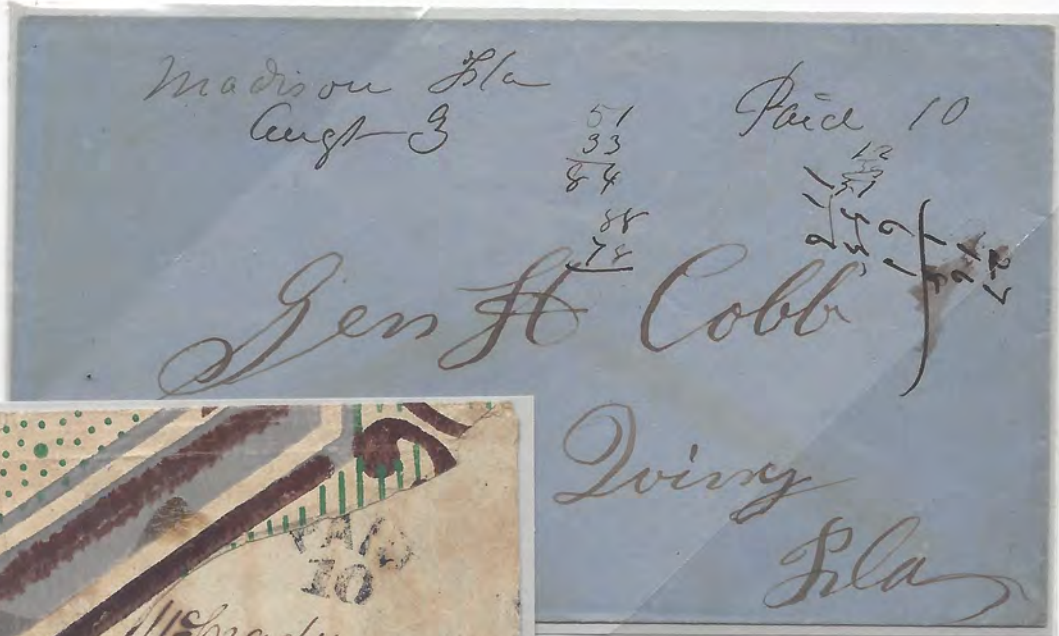 Madison Fla
Augt 3
Paid 10
51
33
84
88
78
12
39
51
Gen H Cobb
Quincy
Fla
PAID
10